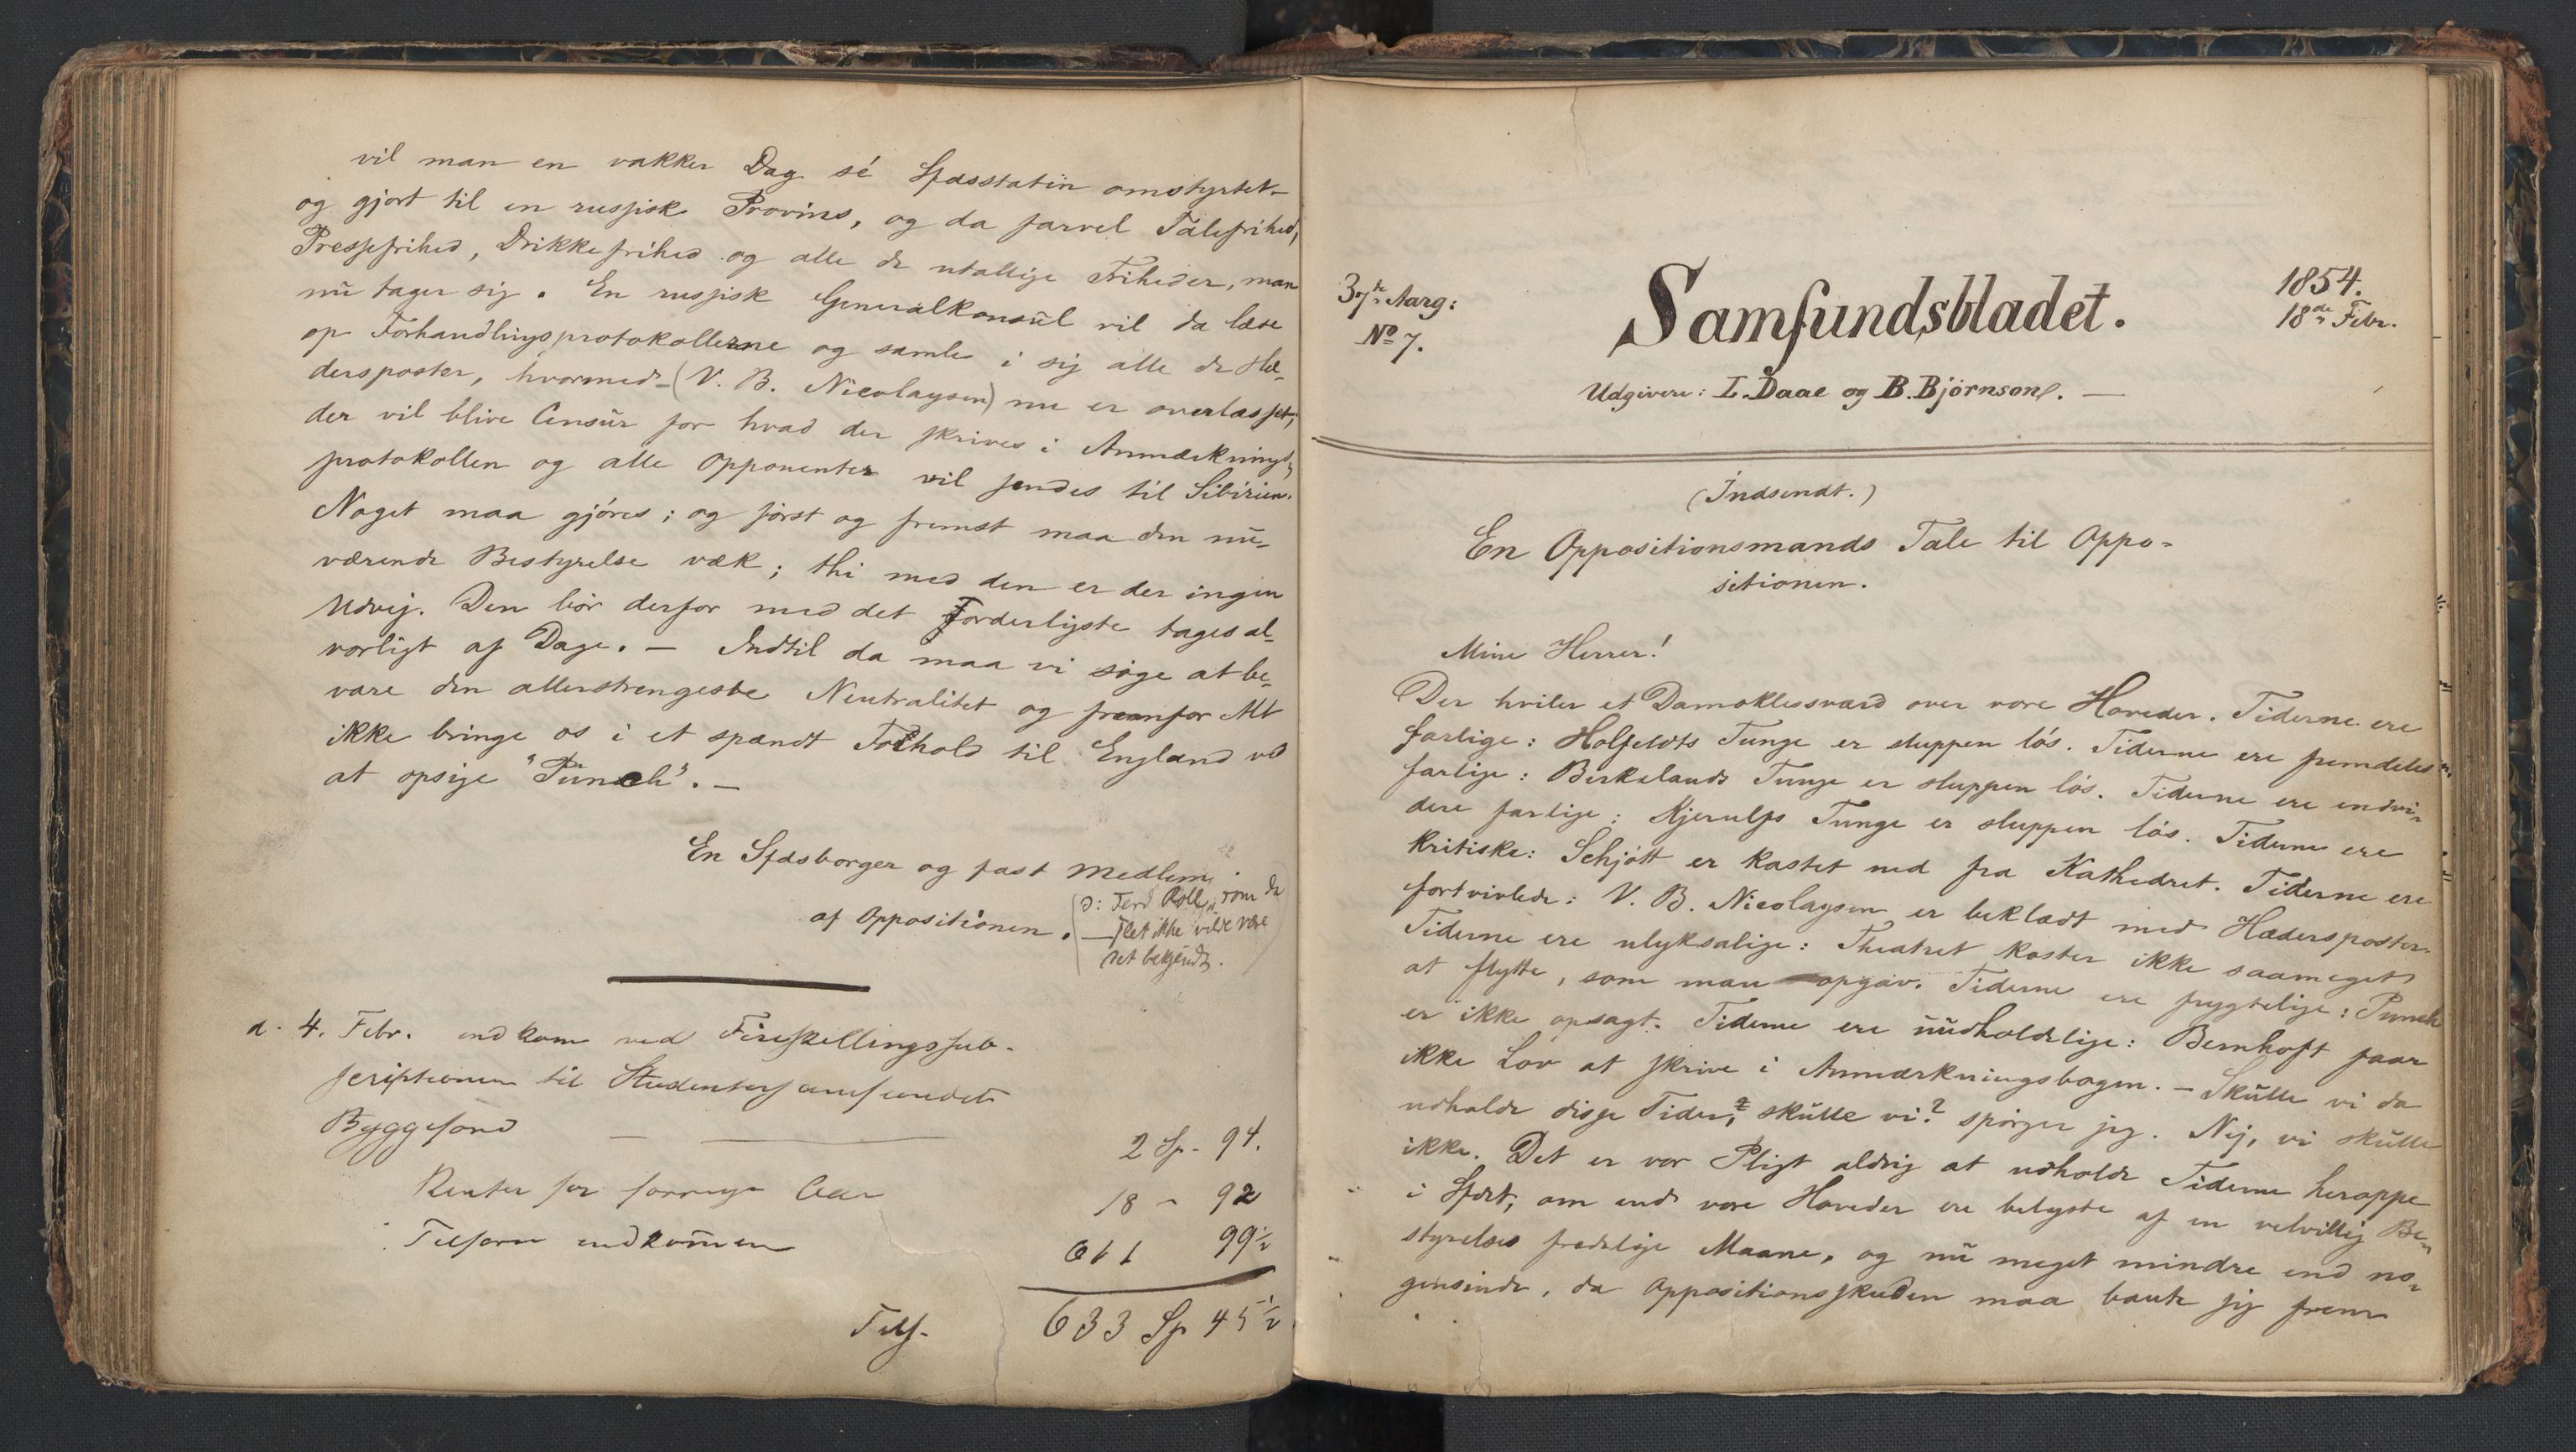 vil man en vakker Dag sé Sfdsstaten omstyrtet
og gjort til en russisk Provins, og da farvel Talefrihed,
Pressefrihed, Drikkefrihed og alle de utallige Friheder, man
nu tager sig. En russisk Generalkonsul vil da læse
op Forhandlingsprotokollerne og samle i sig alle de Hæ-
dersposter, hvormed (V. B. Nicolaysen) nu er overlæsset,
der vil blive Censur for hvad der skrives i Anmærknings-
protokollen og alle Opponenter vil sendes til Sibirien.
Noget maa gjöres; og först og fremst maa den nu-
værende Bestyrelse væk; thi med den er der ingen
Udvej. Den bör derfor med det Forderligste tages al-
vorligt af Dage. — Indtil da maa vi söge at be-
vare den allerstrengeste Neutralitet og fremfor Alt
ikke bringe os i et spændt Forhold til England ved
at opsige "Punch". —
En Sfdsborger og fast Medlem
af Oppositionen.
(ɔ: Ferd Roll, som da
— slet ikke vilde være
ret bekjendt.
d. 4. Febr. indkom ved Fireskillingssub-
scriptionen til Studentersamfundets
Byggefond — — 2 Sp. 94.
Renter for forrige Aar 18 - 92
Tilforn indkommen 611 99½
Tils. 633 Sp 45½
3die Aarg:
No 7.
Samfundsbladet.
1854.
18de Febr.
Udgivere: L. Daae og B. Björnson. —
(Indsendt.)
En Oppositionsmands Tale til Oppo-
sitionen.
Mine Herrer!
Der hviler et Damoklessværd over vore Hoveder. Tiderne ere
farlige: Holfeldts Tunge er sluppen lös. Tiderne ere fremdeles
farlige: Birkelands Tunge er sluppen lös. Tiderne ere endvi-
dere farlige: Kjerulfs Tunge er sluppen lös. Tiderne ere
kritiske: Schjött er kastet ned fra Kathedret. Tiderne ere
fortvivlede: V. B. Nicolaysen er beklædt med Hædersposter.
Tiderne ere ulyksalige: Theatret koster ikke saameget
at flytte, som man opgav. Tiderne ere frygtelige: Punch
er ikke opsagt. Tiderne ere uudholdelige: Bernhoft faar
ikke Lov at skrive i Anmærkningsbogen. — Skulle vi da
udholde disse Tider, skulle vi? spörger jeg. Nej, vi skulle
ikke. Det er vor Pligt aldrig at udholde Tiderne heroppe
i Sfdet, om end vore Hoveder ere belyste af en velvillig Be-
styrelses fredelige Maane, og nu meget mindre end no-
gensinde, da Oppositionsskuden maa baute sig frem